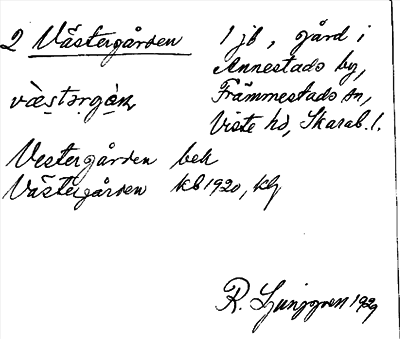 2 Västergården 1 jb, gård i
Annestads by,
Främmestads sn,
Viste hd, Skarab. l.
Vestergården bek
Västergården kb 1920, klg
R. Ljunggren 1929